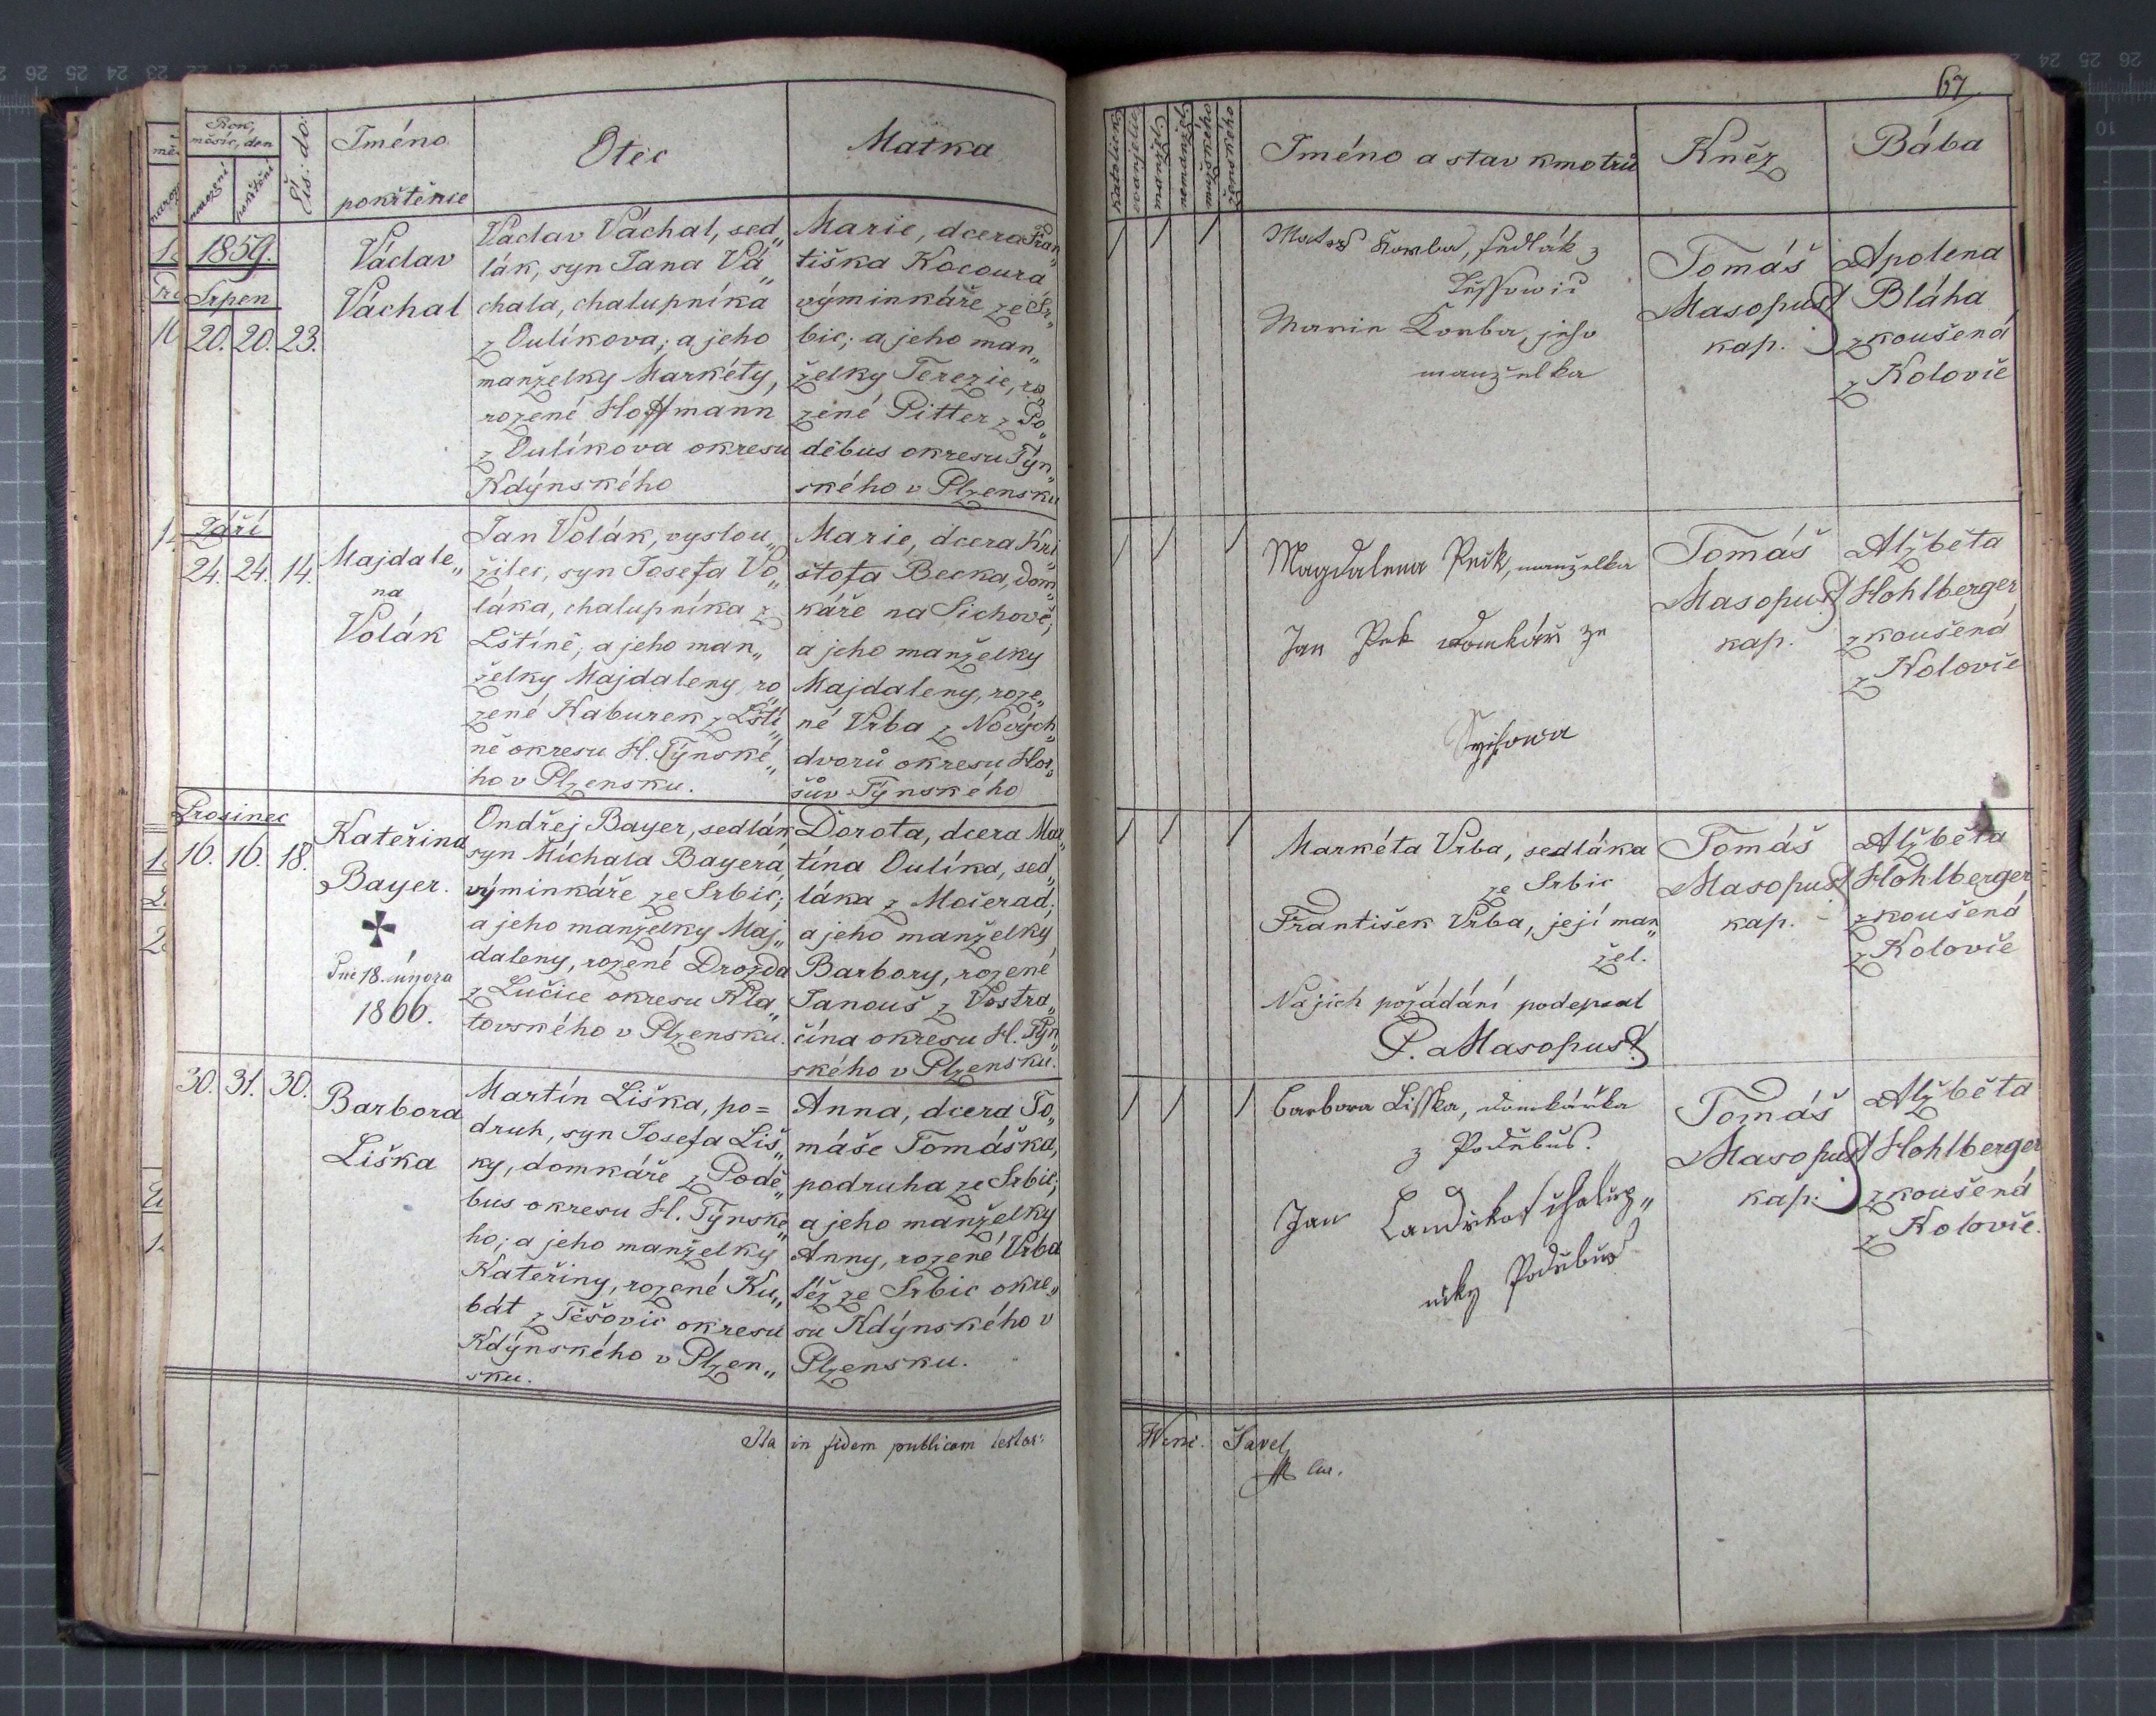 67
Rok,
měsíc, den
narození
pokřtění
Čís: do:
Jméno
pokřtěnce
Otec
Matka
katolické
evanjelic.
manželské
nemanželské
mužského
ženského
Jméno a stav kmotrů
Kněz
Bába
1859.
Srpen
20. 20. 23.
Václav
Váchal
Václav Váchal, sed„
lák, syn Jana Vá„
chala, chalupníka
z Oulíkova; a jeho
manželky Markéty,
rozené Hoffmann
z Oulíkova okresu
Kdýnského
Marie, dcera Fran„
tiška Kocoura
výminkáře ze Sr„
bic; a jeho man„
želky Terezie, ro„
zené Pitter z Po„
děbus okresu Týn„
ského v Plzensku
Kowba, sedlák z
Marie Kowba, jeho
manželka
Tomáš
Masopust
kap.
Apolena
Bláha
zkoušená
z Kolovče
Září
24. 24. 14.
Majdale„
na
Volák
Jan Volák, vyslou„
žilec, syn Josefa Vo„
láka, chalupníka z
Lštíně; a jeho man„
želky Majdaleny, ro„
zené Kaburek z Lští„
ně okresu H. Týnské„
ho v Plzensku.
Marie, dcera Kri„
štofa Becka, dom„
káře na Sichově;
a jeho manželky
Majdaleny, roze„
né Vrba z Nových„
dvorů okresu Hor„
šův Týnského
Magdalena Peck, manželka
Jan Pek domkář ze
Tomáš
Masopust
kap.
Alžběta
Hohlberger
zkoušená
z Kolovče
Prosinec
16. 16. 18.
Kateřina
Bayer.
Dne 18. února
1866.
Ondřej Bayer, sedlák
syn Michala Bayera,
výminkáře ze Srbic;
a jeho manželky Maj„
daleny, rozené Drozda
z Lučice okresu Kla„
tovského v Plzensku.
Dorota, dcera Mar„
tína Oulíka, sed„
láka z Močerad;
a jeho manželky
Barbory, rozené
Janouš z Vostra„
čína okresu H. Týn„
ského v Plzensku.
Markéta Vrba, sedláka
ze Srbic
František Vrba, její man„
žel.
Na jich požádání podepsal
P. Masopust
Tomáš
Masopust
kap.
Alžběta
Hohlberger
zkoušená
z Kolovče
30. 31. 30.
Barbora
Liška
Martín Liška, po=
druh, syn Josefa Liš„
ky, domkáře z Podě„
bus okresu H. Týnské„
ho; a jeho manželky
Kateřiny, rozené Ku„
bát z Těšovic okresu
Kdýnského v Plzen„
sku.
Anna, dcera To„
máše Tomáška,
podruha ze Srbic;
a jeho manželky
Anny, rozené Vrba
též ze Srbic okre„
su Kdýnského v
Plzensku.
Barbora Lisska, domkářka
z Poděbus.
Jan
Poděbus
Tomáš
Masopust
kap.
Alžběta
Hohlberger
zkoušená
z Kolovče.
Ita in fidem publicam testor:
Wenc. Pavel